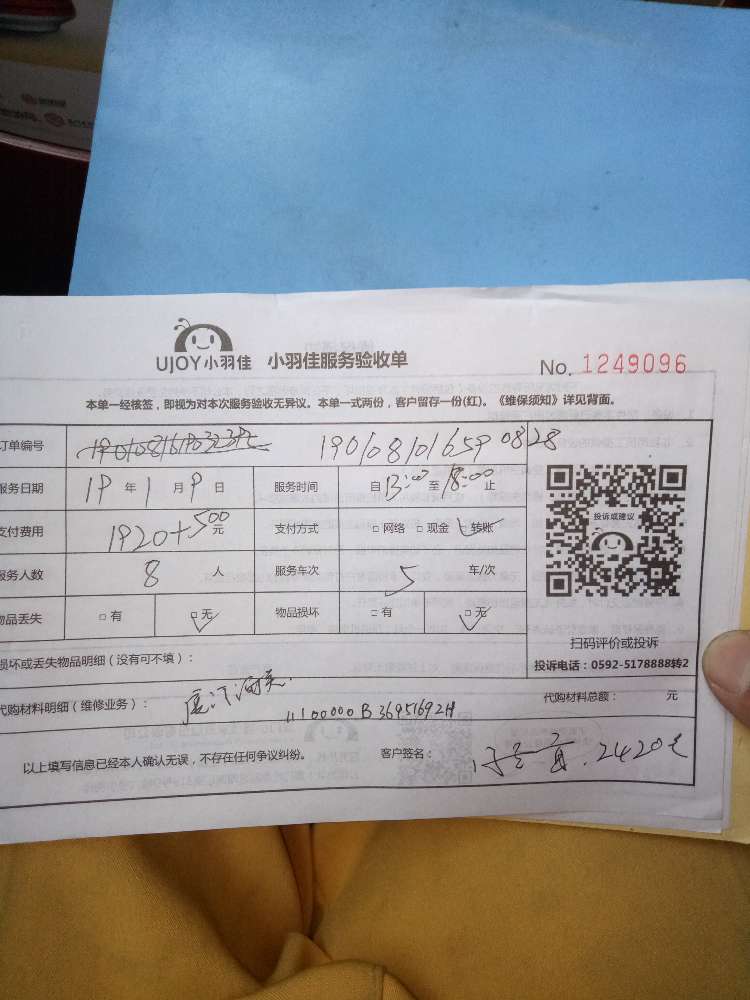 UJOY小羽佳 小羽佳服务验收单 No. 1249096
本单一经核签，即视为对本次服务验收无异议。本单一式两份，客户留存一份(红)。《维保须知》详见背面。
订单编号 190108101659 0828
服务日期 19 年 1 月 9 日 服务时间 自 13:00 至 18:00 止
支付费用 1920+500 元 支付方式 □ 网络 □ 现金 □ 转账
服务人数 8 人 服务车次 5 车/次
物品丢失 □ 有 □ 无 物品损坏 □ 有 □ 无
投诉或建议
扫码评价或投诉
投诉电话：0592-5178888转2
损坏或丢失物品明细（没有可不填）：
代购材料明细（维修业务）： 代购材料总额： 元
厦门
91100000B36951692H
以上填写信息已经本人确认无误，不存在任何争议纠纷。 客户签名： 2420元